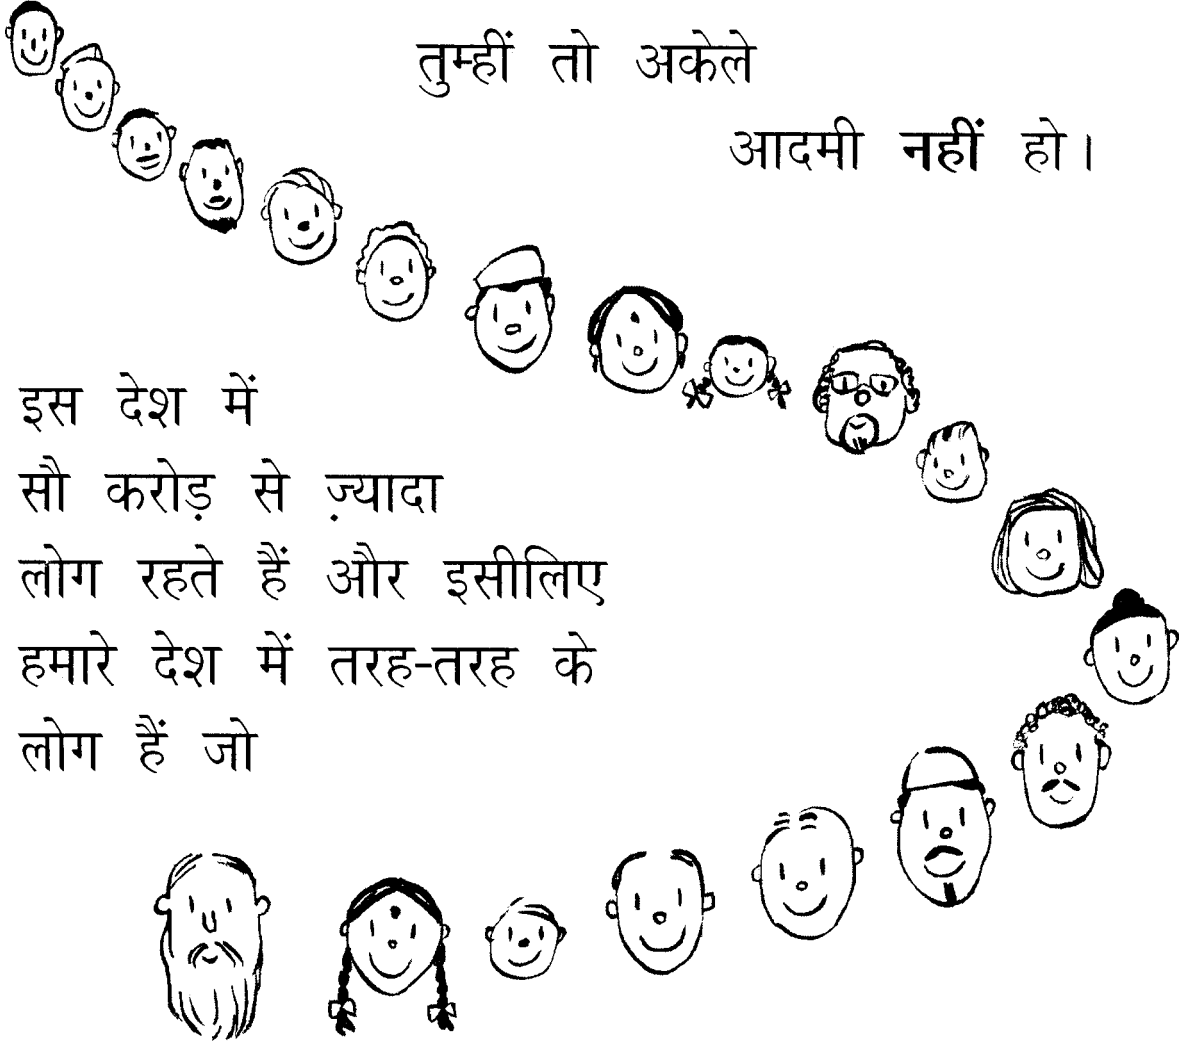 तुम्हीं तो अकेले
आदमी नहीं हो।
इस देश में
सौ करोड़ से ज़्यादा
लोग रहते हैं और इसीलिए
हमारे देश में तरह-तरह के
लोग हैं जो